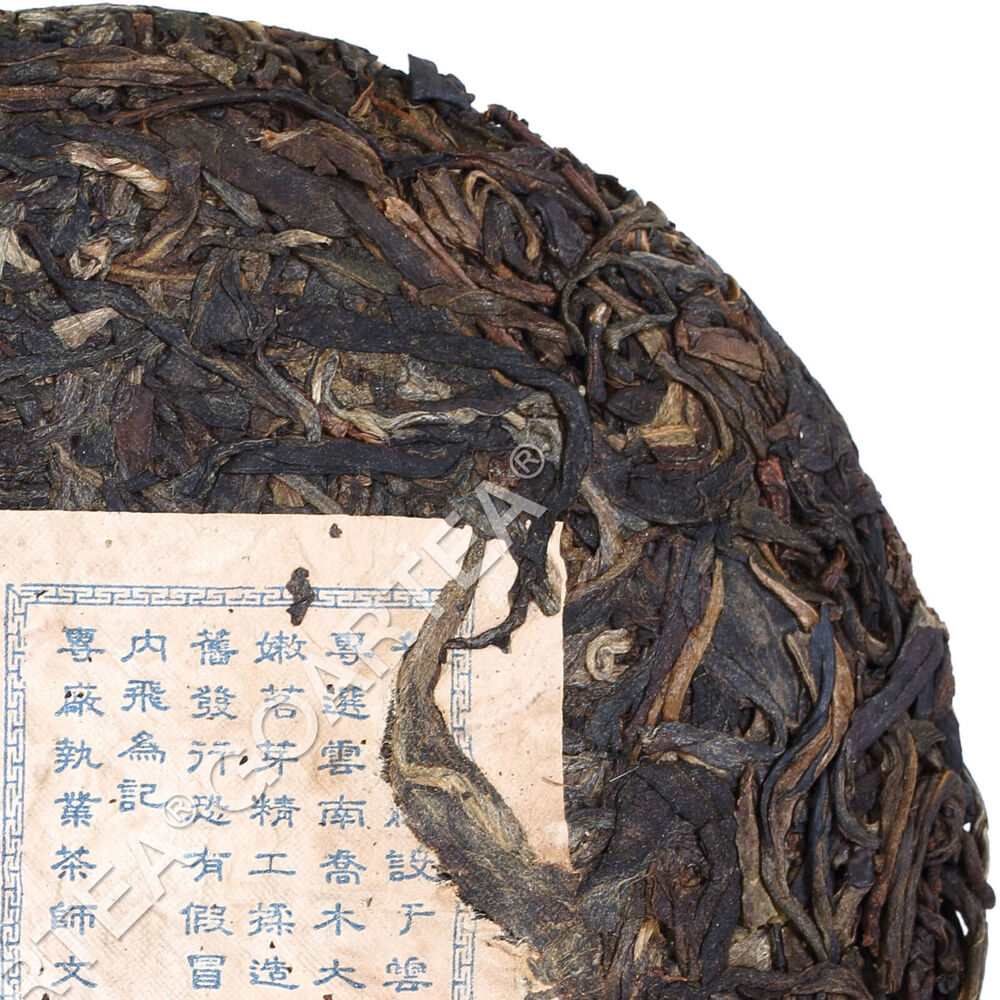 設于雲
專選雲南喬木大
嫩茗芽精工揉造
舊發行恐有假冒
內飛為記
專廠執業茶師文
GOARTEA®